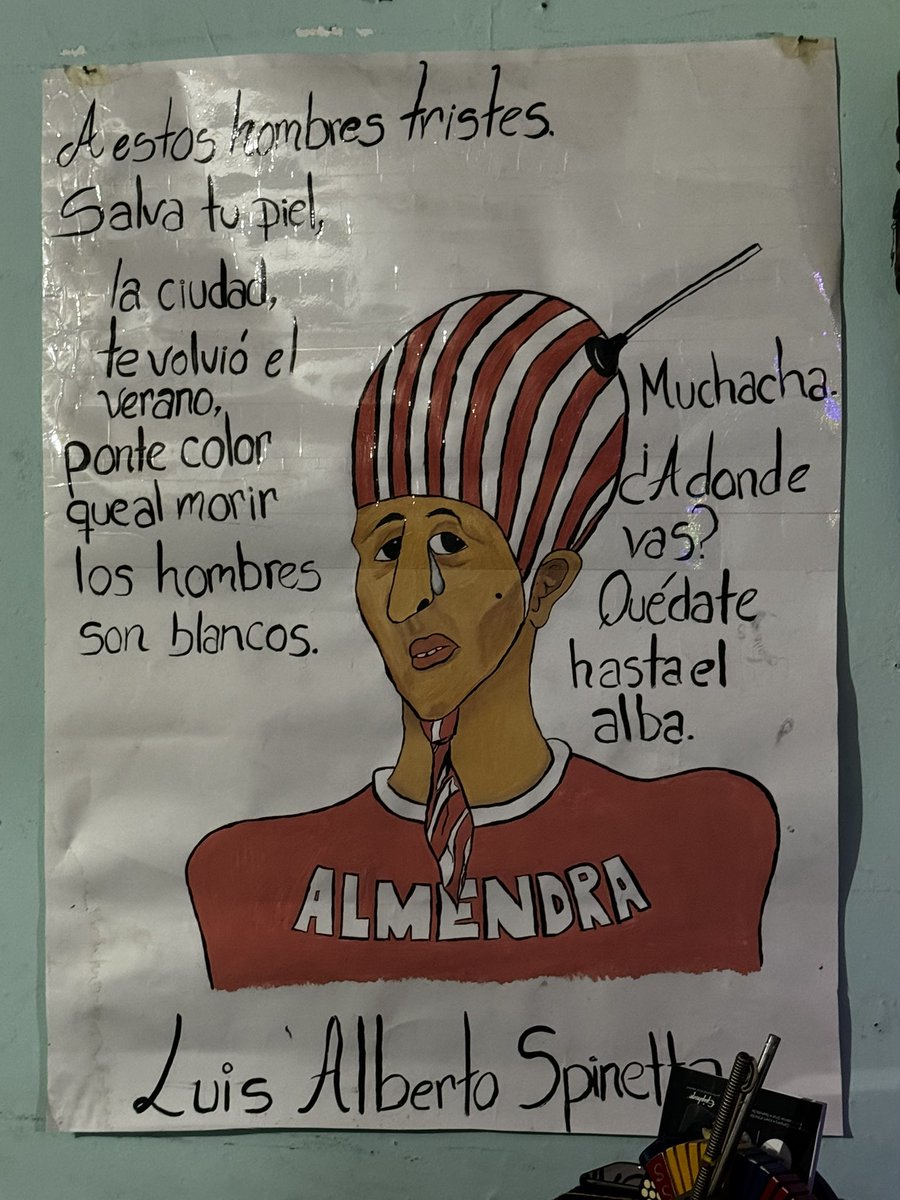 A estos hombres tristes.
Salva tu piel,
la ciudad,
te volvió el
verano,
ponte color
que al morir
los hombres
son blancos.
Muchacha.
¿A donde
vas?
Quédate
hasta el
alba.
ALMENDRA
Luis Alberto Spinetta
Epiphone